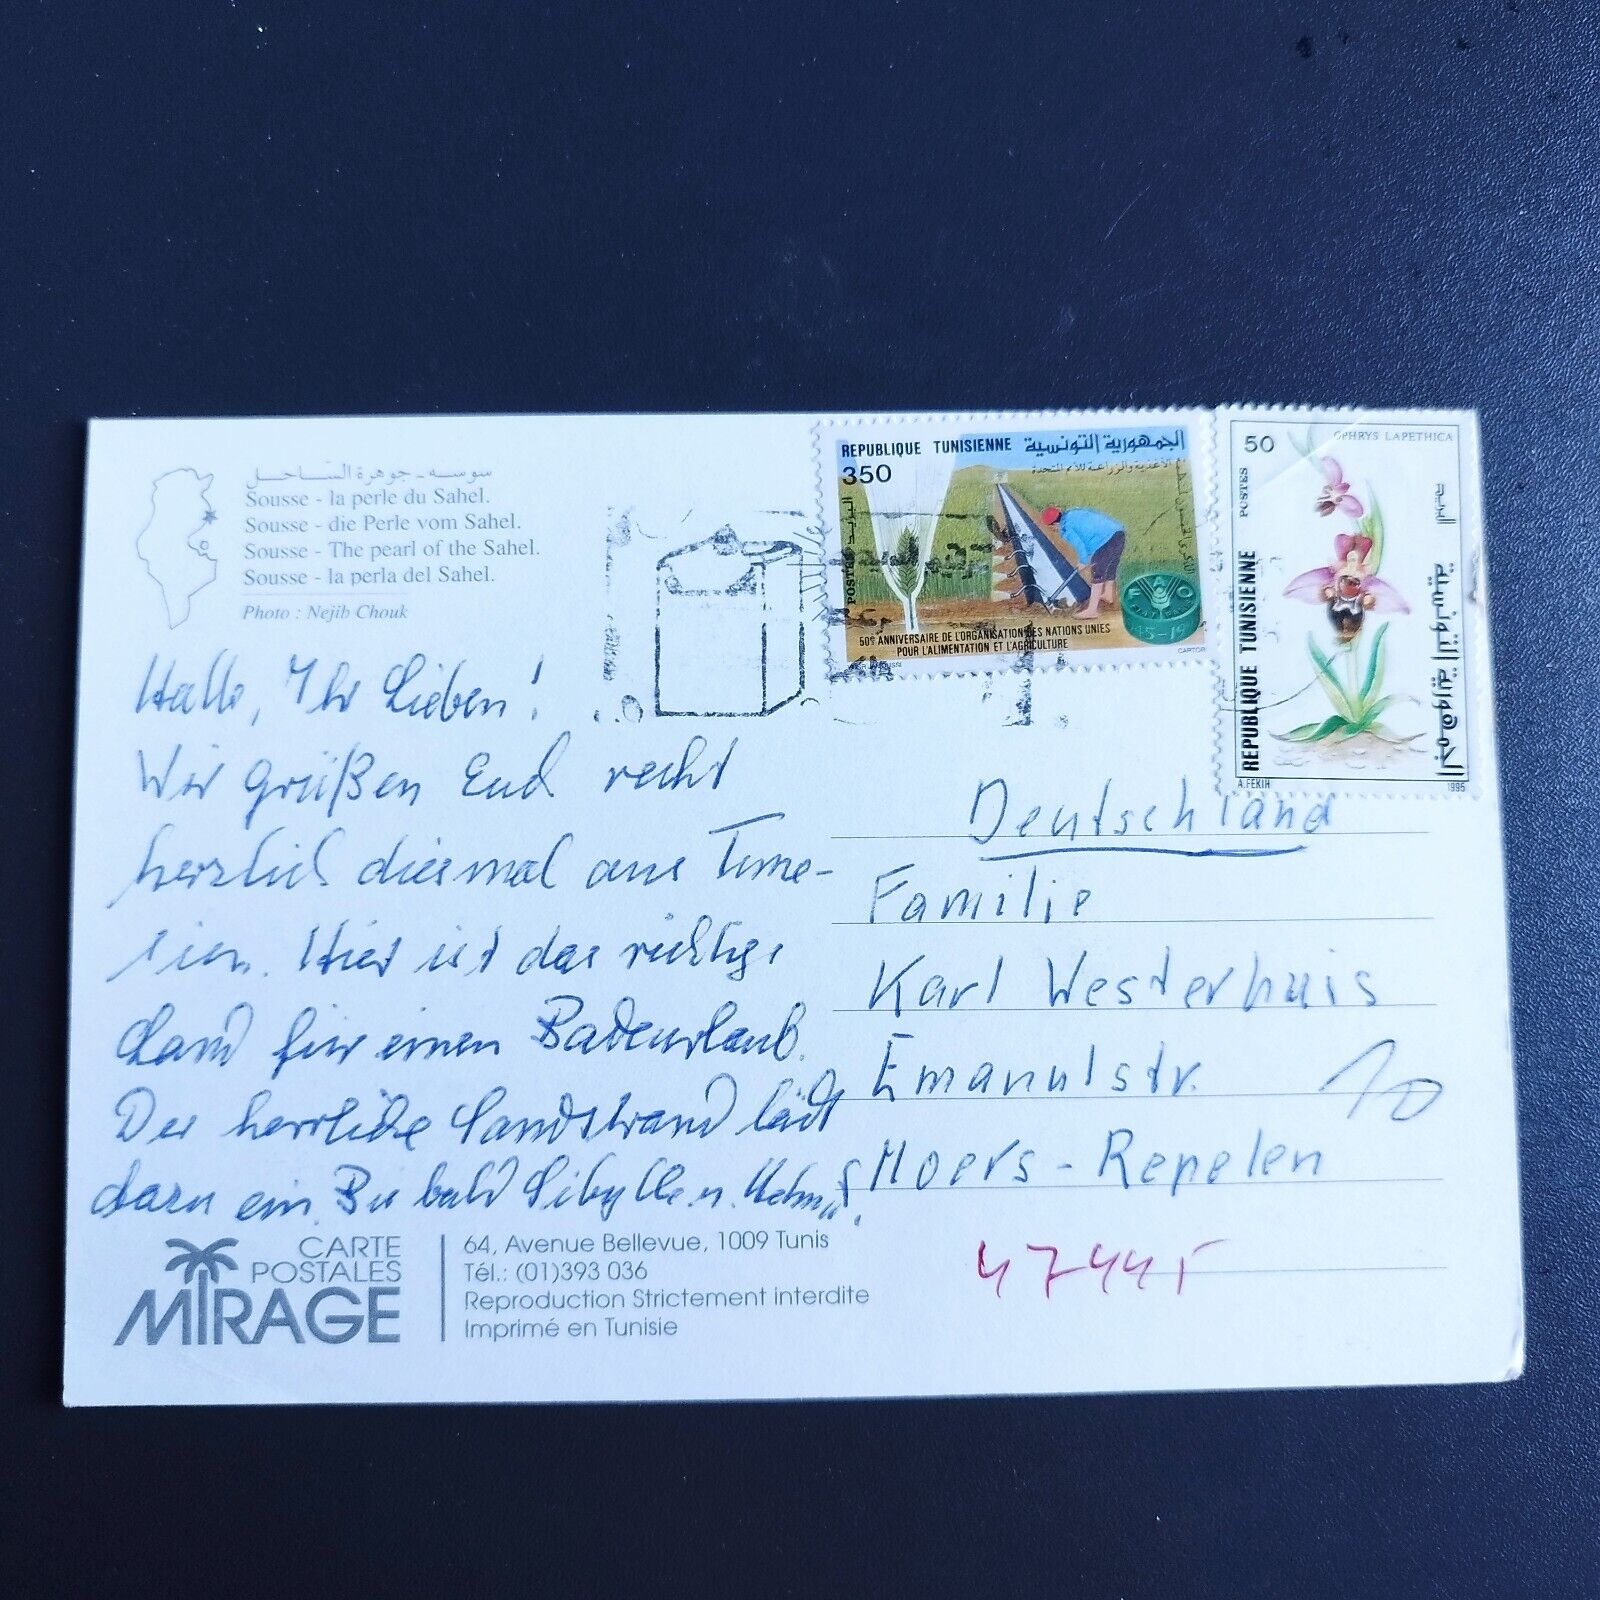 سوسه - جوهرة الساحل
Sousse - la perle du Sahel.
Sousse - die Perle vom Sahel.
Sousse - The pearl of the Sahel.
Sousse - la perla del Sahel.
Photo : Nejib Chouk
Hallo, Ihr Lieben!
Wir grüßen Euch recht
herzlich diesmal aus Tune-
sien. Hier ist das richtige
Land für einen Badeurlaub.
Der herrliche Sandstrand lädt
dazu ein. Bis bald Sibylle u. Helmut.
CARTE
POSTALES
MIRAGE
64, Avenue Bellevue, 1009 Tunis
Tél.: (01)393 036
Reproduction Strictement interdite
Imprimé en Tunisie
REPUBLIQUE TUNISIENNE الجمهورية التونسية
350
POSTES البريد
50e ANNIVERSAIRE DE L'ORGANISATION DES NATIONS UNIES
POUR L'ALIMENTATION ET L'AGRICULTURE
CARTOR
50
OPHRYS LAPETHICA
POSTES البريد
REPUBLIQUE TUNISIENNE
الجمهورية التونسية
A.FEKIH
1995
Deutschland
Familie
Karl Westerhuis
Emanulstr. 10
Moers-Repelen
47445